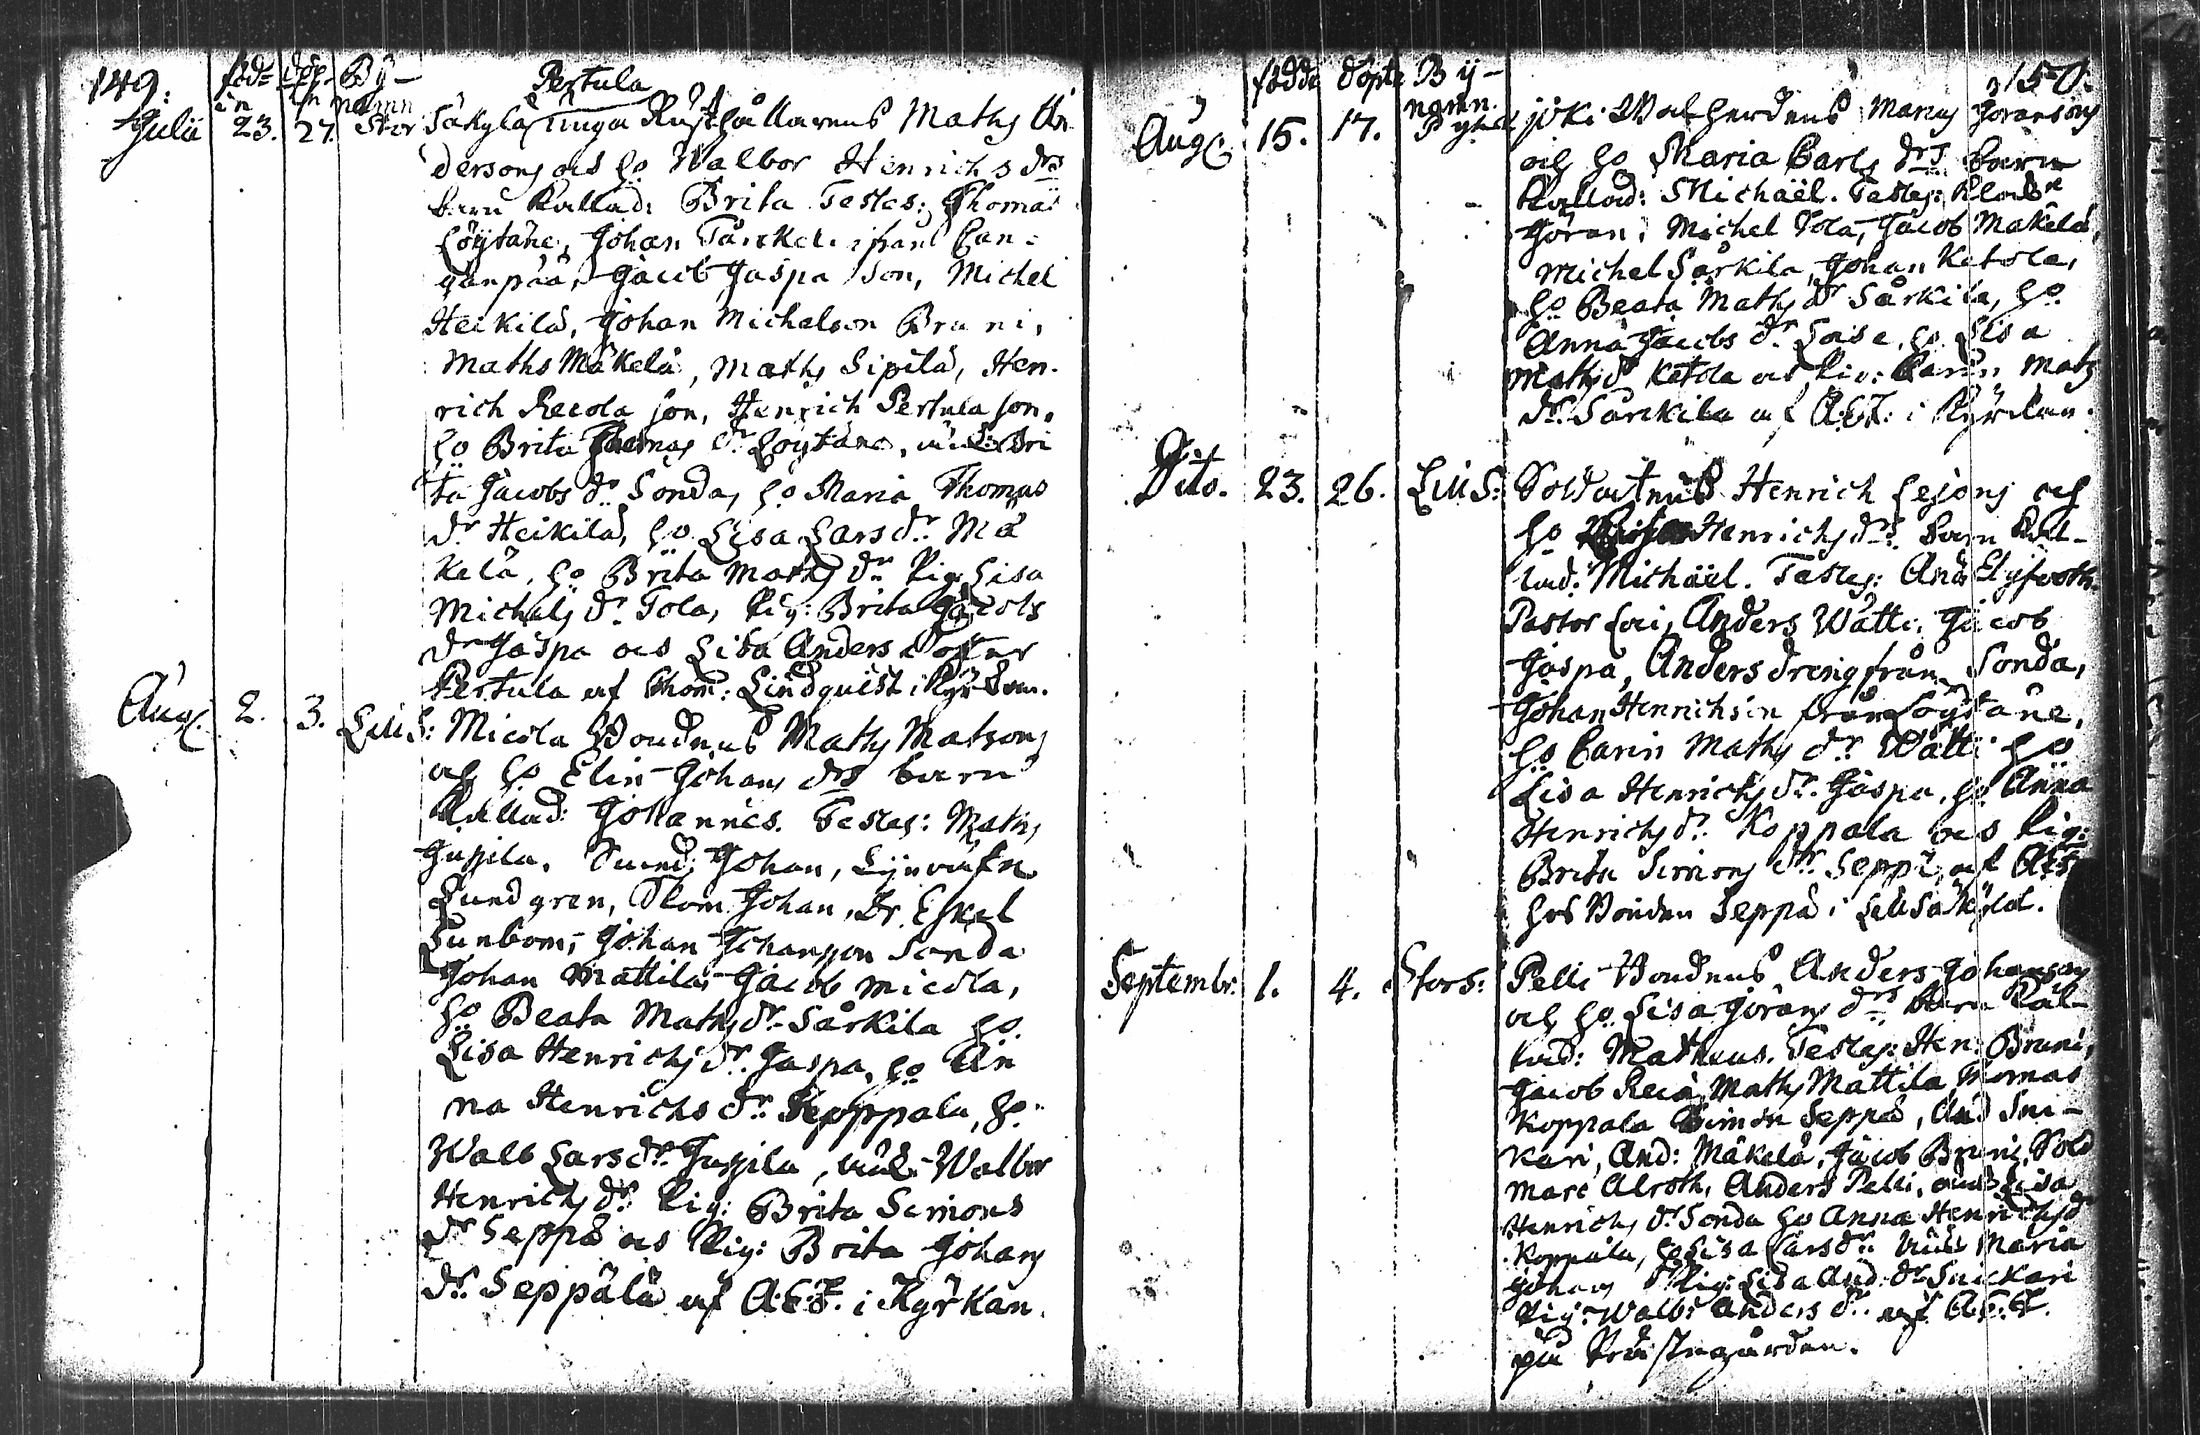 149.
föd= döp= By=
in in namn
Pertula
Julii 23. 27. Stor Säkylä unga Rusthållarens Maths An-
dersons och ho Walbor Henrichs drs
barn kallad: Brita Testes: Thomas
Löytäne, Johan Tärckki ifrån Can=
ganpää, Jacob Jaspa son, Michel
Heikilä, Johan Michelson Bruni,
Maths Mäkelä, Maths Sipilä, Hen-
rich Recola son, Henrich Pertula son,
ho Brita Thomas dr Löytäne, Bri
ta Jacobs dr Sonda, ho Maria Thomas
dr Heikilä, ho Lisa Lars dr Mä
kelä, ho Brita Maths dr Pig: Lisa
Michels dr Tola, Pig: Brita Jacobs
dr Jaspa och Lisa Anders dotter
Pertula af Lindquist i Kyrkan.
Aug. 2. 3. LillS: Micola Bondens Maths Matsons
och ho Elin Johans drs barn
kallad: Johannes. Testes: Maths
Jussila, Johan,
Lundgren, Johan, Eskel
Sunbom, Johan Johansson Sonda
Johan Mattila, Jacob Micola,
ho Beata Maths dr Särkilä ho
Lisa Henrichs dr Jaspa, ho An
na Henrichs dr Koppala, ho
Walb Lars dr Jussila, Walbor
Henrichs dr Pig: Brita Simons
dr Seppä och Pig: Brita Johans
dr Seppälä af A.E.T. i Kyrkan.
150.
födde döpte By-
namn.
Aug. 15. 17. joki Walherdens Marcus Göransons
och ho Maria Carls drs barn
kallad: Michaël. Testes:
Göran, Michel Tola, Jacob Mäkelä,
Michel Särkilä, Johan Ketola,
ho Beata Maths dr Särkilä, ho
Anna Jacobs dr ho Lisa
Maths dr Ketola och Pig: Carin Mats
dr Särckilä af A.E.T. i Kyrckan.
Dito. 23. 26. LillS: Soldatens Henrich Lejons och
ho Henrichs drs barn kal-
lad: Michäel. Testes: And: Elgfooth
Pastor Loci, Anders Wätti, Jacob
Jaspa, Anders dreng från Sonda,
Johan Henrichson från Löytäne,
ho Carin Maths dr Wätti ho
Lisa Henrichs dr Jaspa, ho Anna
Henrichs dr Koppala och Pig:
Brita Simons dr Seppä, af
hos Bonden Seppä i LillSäkylä.
Septembr: 1. 4. StorS: Pelli Bondens Anders Johansons
och ho Lisa Görans drs barn kal-
lad: Matheus. Testes: Hen: Bruni,
Jacob Maths Mattila Thomas
Koppala Simon Seppä, And Snic-
kari, And: Mäkelä, Jacob Bruni, Sold
Marc Alroth, Anders Pelli, Lisa
Henrichs dr Sonda ho Anna Henrichs dr
Koppala, ho Lisa Lars dr Maria
Johans dr Pig: Lisa And: dr Snickari
Pig: Walbr Anders dr af A.E.T.
på Prästegården.